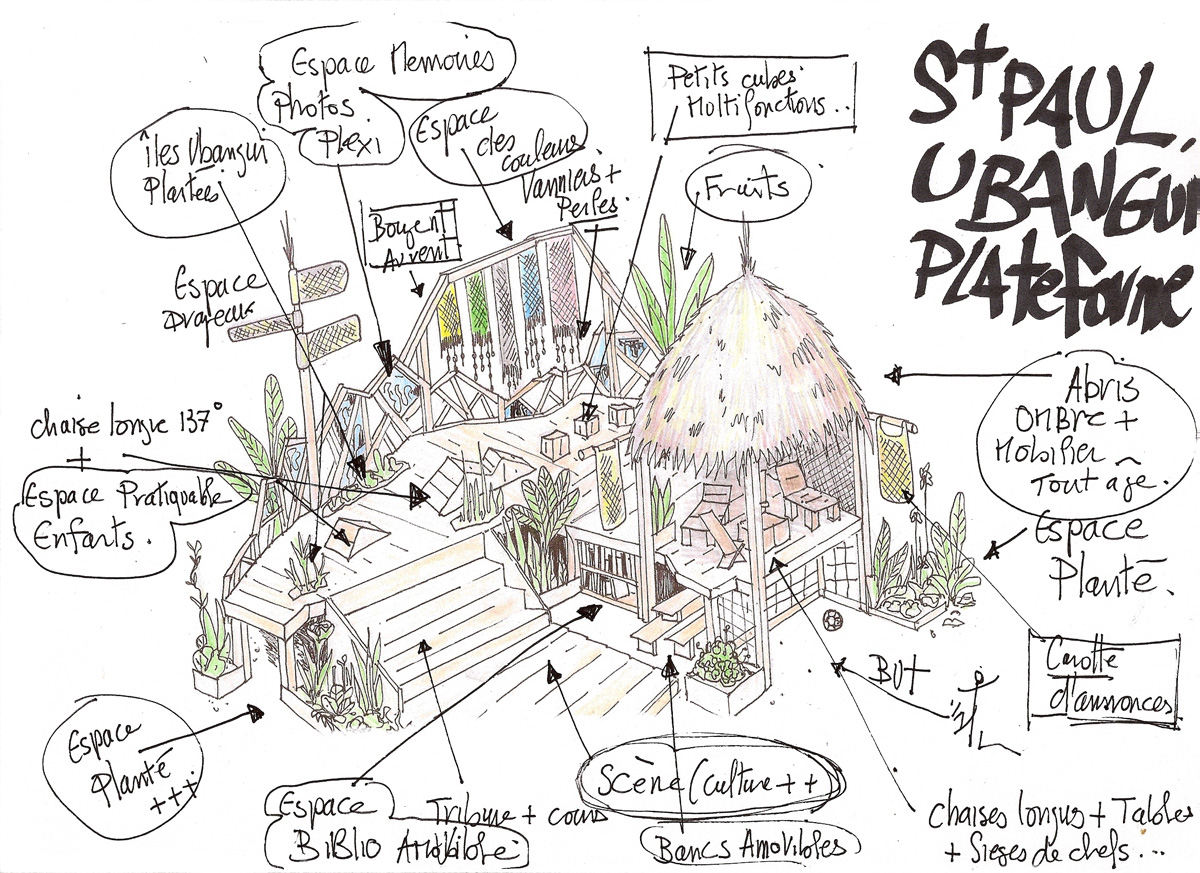 St PAUL,
UBANGUI
PLATeforme
Espace Memoires
Photos
Plexi
Espace
des
couleurs
Vanniers +
Perles
Petits cubes
Multifonctions..
Fruits
Îles Ubangui
Plantées
Bouzent
Auvent
Espace
chaise longue 137°
+
Espace Pratiquable
Enfants.
Abris
OMBRE +
Mobilier
Tout âge.
Espace
Planté.
Carotte
d'annonces
BUT
Espace
Planté
+++
Espace
BiBlio Amovible
Tribune + cours
Scène (culture ++)
Bancs Amovibles
Chaises longues + Tables
+ Sieges de chefs...